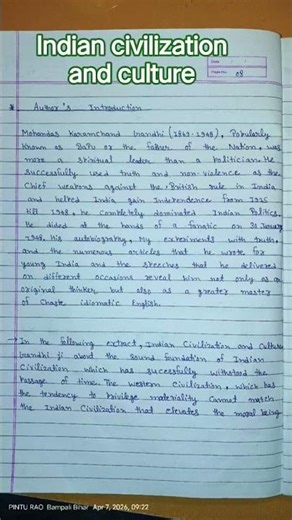 Indian civilization
and culture
Date
Page No. 08
* Author's Introduction
Mohandas Karamchand Gandhi (1869-1948), Popularly
known as BaPu or the father of the Nation, was
more a spiritual leader than a Politician. He
successfully used truth and non-violence as the
Chief weapons against the British rule in India
and helped India gain Independence from 1915
till 1948, he completely dominated Indian Politics.
He dided at the hands of a fanatic on 30 January
1948. His autobiography, My experiments with truth,
and the numerous articles that he wrote for
young India and the speeches that he delivered
on different occasions reveal him not only as an
original thinker but also as a greater master
of Chaste idiomatic English.
→ In the following extract, Indian Civilization and Culture
Gandhi ji about the sound foundation of Indian
Civilization which has sucessfully withstood the
Passage of time. The western Civilization, which has
the tendency to Privilege materiality Cannot match
the Indian Civilization that elevates the moral being
PINTU RAO Bampali Bihar Apr 7, 2026, 09:22